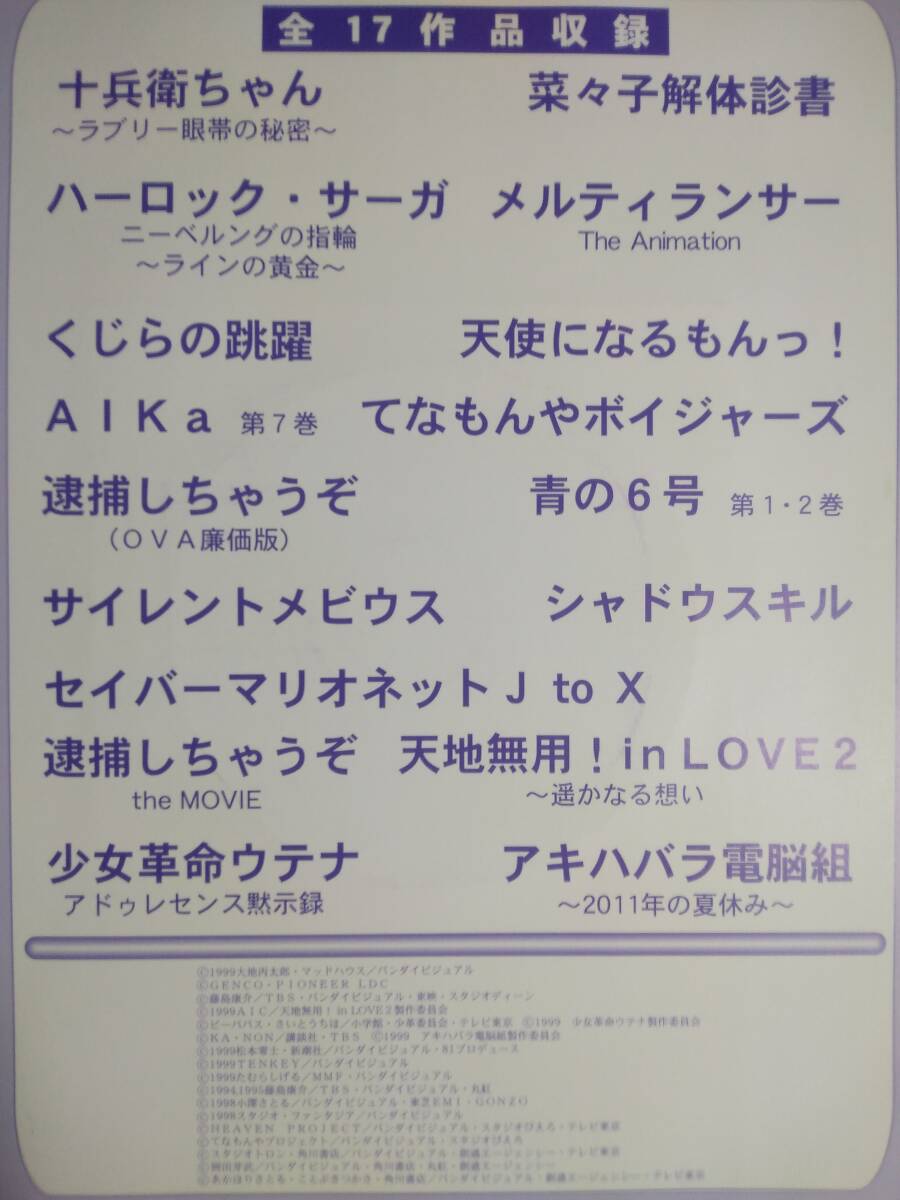 全17作品収録
十兵衛ちゃん　菜々子解体診書
～ラブリー眼帯の秘密～
ハーロック・サーガ　メルティランサー
ニーベルングの指輪　The Animation
～ラインの黄金～
くじらの跳躍　天使になるもんっ！
ＡＩＫａ 第７巻　てなもんやボイジャーズ
逮捕しちゃうぞ　青の６号 第１・２巻
（ＯＶＡ廉価版）
サイレントメビウス　シャドウスキル
セイバーマリオネットＪ to Ｘ
逮捕しちゃうぞ　天地無用！in LOVE２
the MOVIE　～遥かなる想い
少女革命ウテナ　アキハバラ電脳組
アドゥレセンス黙示録　～2011年の夏休み～
©1999大地丙太郎・マッドハウス／バンダイビジュアル
©GENCO・PIONEER LDC
©藤島康介／TBS・バンダイビジュアル・東映・スタジオディーン
©1999AIC／天地無用！in LOVE2製作委員会
©ビーパパス・さいとうちほ／小学館・少革委員会・テレビ東京　©1999　少女革命ウテナ製作委員会
©KA・NON／講談社・TBS　©1999　アキハバラ電脳組製作委員会
©1999松本零士・新潮社／バンダイビジュアル・81プロデュース
©1999TENKEY／バンダイビジュアル
©1999たむらしげる／MMF・バンダイビジュアル
©1994,1995藤島康介／TBS・バンダイビジュアル・丸紅
©1998小澤さとる／バンダイビジュアル・東芝EMI・GONZO
©1998スタジオ・ファンタジア／バンダイビジュアル
©HEAVEN PROJECT／バンダイビジュアル・スタジオぴえろ・テレビ東京
©てなもんやプロジェクト／バンダイビジュアル・スタジオぴえろ
©スタジオトロン・角川書店／バンダイビジュアル・創通エージェンシー・テレビ東京
©岡田芽武／バンダイビジュアル・角川書店・丸紅・創通エージェンシー
©あかほりさとる・ことぶきつかさ・角川書店／バンダイビジュアル・創通エージェンシー・テレビ東京